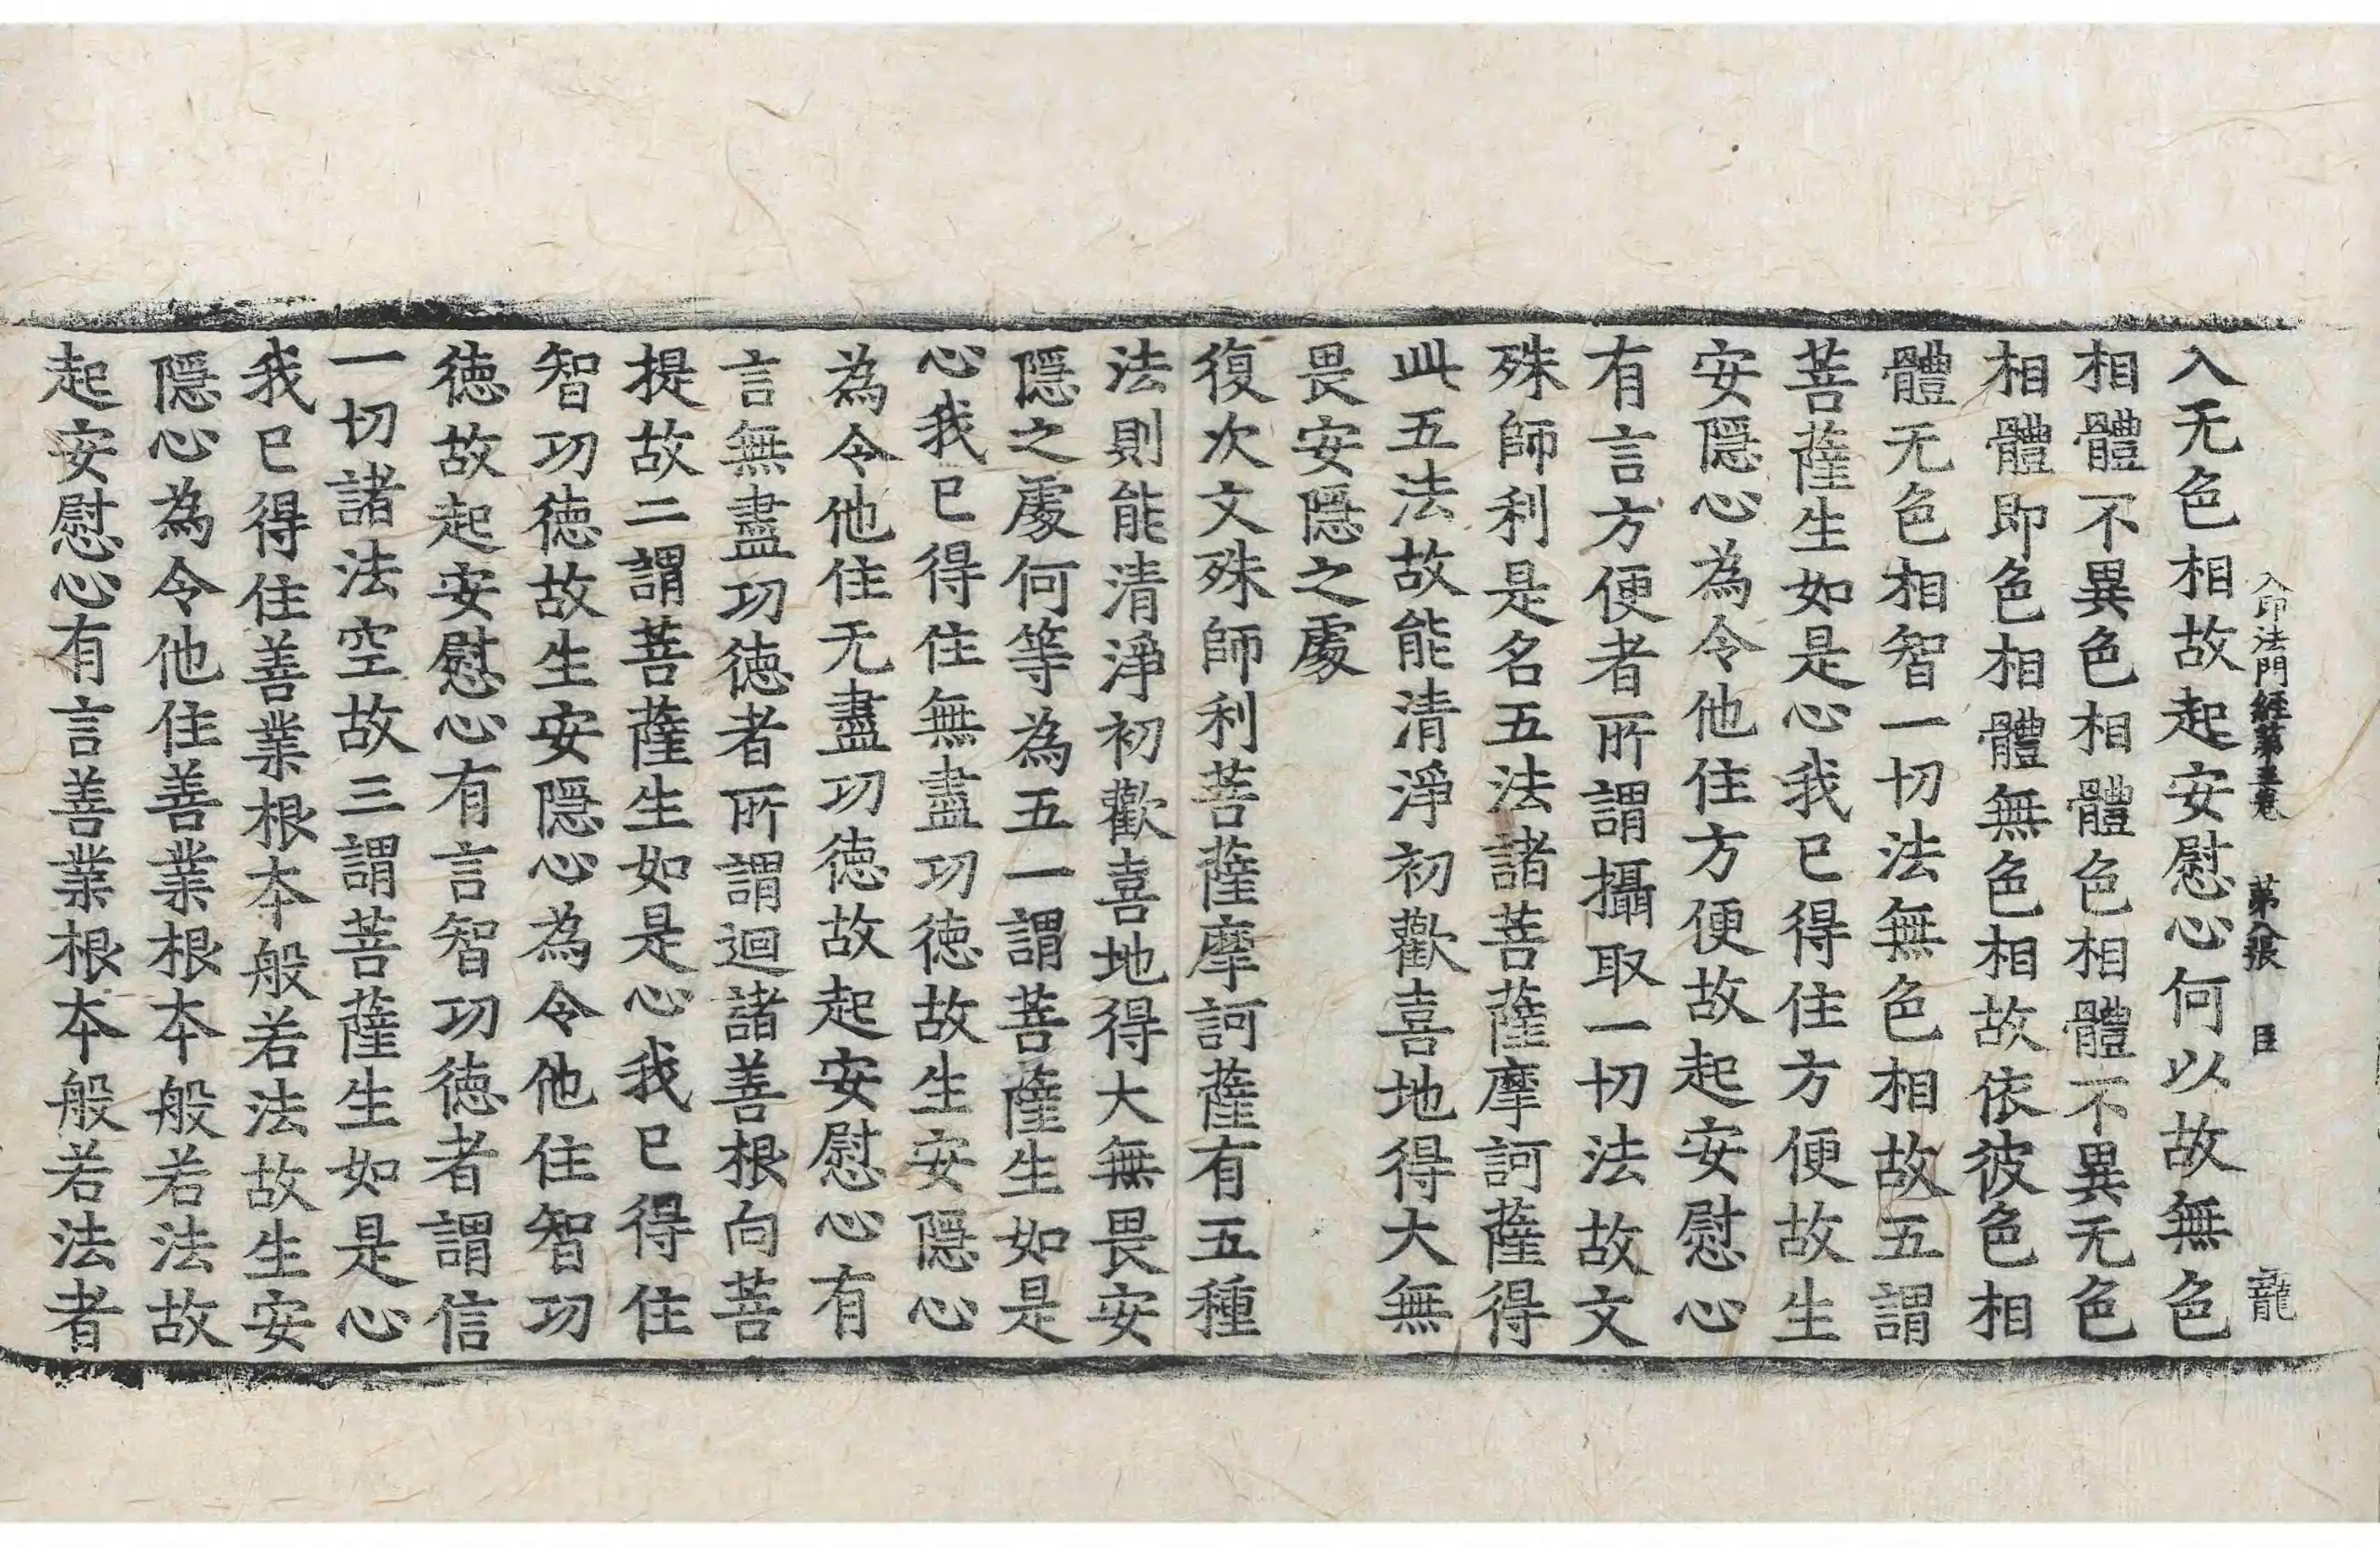 入印法門經第五卷 第八張 臣 龍
入无色相故起安慰心何以故無色
相體不異色相體色相體不異无色
相體即色相體無色相故依彼色相
體无色相智一切法無色相故五謂
菩薩生如是心我已得住方便故生
安隱心為令他住方便故起安慰心
有言方便者所謂攝取一切法故文
殊師利是名五法諸菩薩摩訶薩得
此五法故能清淨初歡喜地得大無
畏安隱之處
復次文殊師利菩薩摩訶薩有五種
法則能清淨初歡喜地得大無畏安
隱之處何等為五一謂菩薩生如是
心我已得住無盡功德故生安隱心
為令他住无盡功德故起安慰心有
言無盡功德者所謂迴諸善根向菩
提故二謂菩薩生如是心我已得住
智功德故生安隱心為令他住智功
德故起安慰心有言智功德者謂信
一切諸法空故三謂菩薩生如是心
我已得住善業根本般若法故生安
隱心為令他住善業根本般若法故
起安慰心有言善業根本般若法者